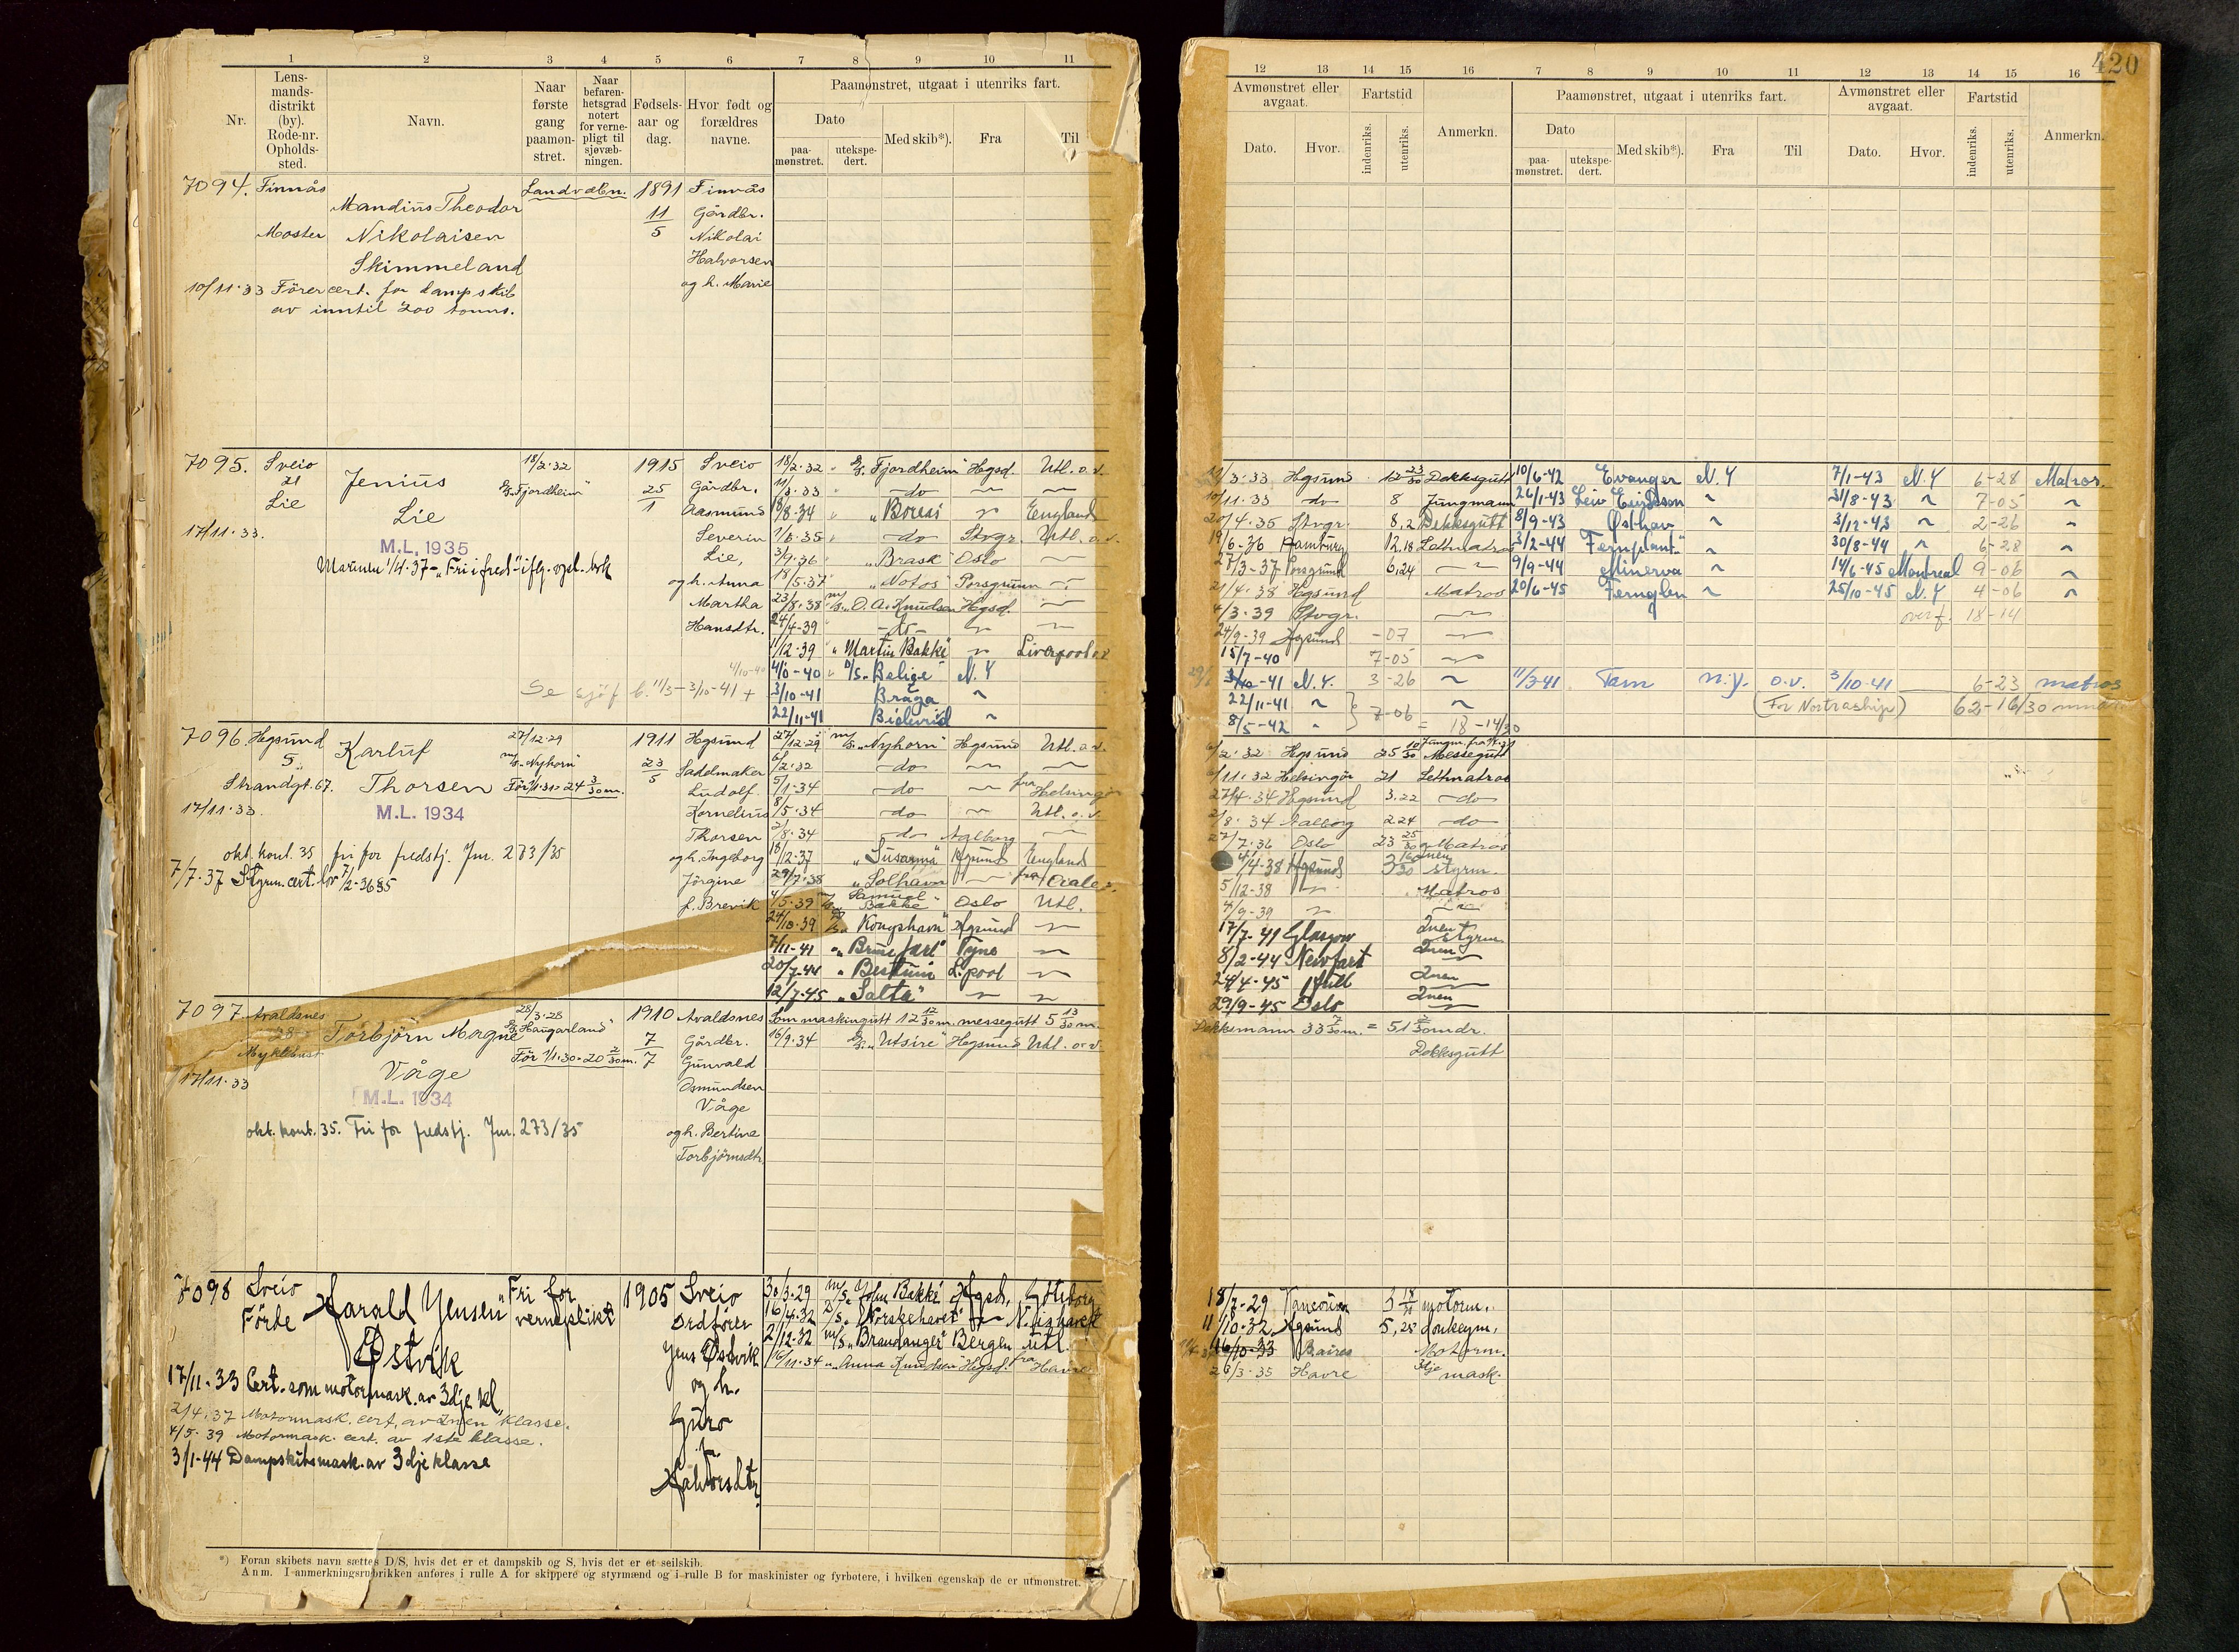 420
1 2 3 4 5 6 7 8 9 10 11
Nr.
Lens-
mands-
distrikt
(by).
Rode-nr.
Opholds-
sted.
Navn.
Naar
første
gang
paamøn-
stret.
Naar
befaren-
hetsgrad
notert
for verne-
pligt til
sjøvæb-
ningen.
Fødsels-
aar og
dag.
Hvor født og
forældres
navne.
Paamønstret, utgaat i utenriks fart.
Dato
paa-
mønstret.
utekspe-
dert.
Med skib*).
Fra
Til
7094. Finnås Landvæbn. 1891 Finnås
Mandius Theodor 11/5 Gårdbr.
Moster Nikolaisen Nikolai
Skimmeland Halvorsen
10/11.33 Förercert. for dampskib og h. Marie
av inntil 200 tonns.
7095. Sveio 18/2.32 1915 Sveio 18/2.32 S/S. "Fjordheim" Hgsd. Utl. o.v.
21 Jenius S/S. "Fjordheim" 25/1 Gårdbr. 11/3.33 do
Lie Lie Aasmund /8.34 "Boreas" England
17/11.33. Severin /5.35 do Stvgr. Utl. o.v.
M.L. 1935 Lie, 3/9.36 "Brask" Oslo
og h. Anna 18/5.37 "Notos" Porsgrunn
Martha 23/8.38 m/s. "O. A. Knudsen" Hgsd.
Hansdtr. 24/4-39 do
1/12.39 "Martin Bakke" Liverpool
4/10-40 4/10-40 D/S. Belize N.Y
Se sjöf b. 11/3-3/10-41 + 3/10-41 Braga
22/11-41 Bidevind
7096. Hgsund 27/12.29 1911 Hgsund 27/12.29 m/s. "Nyhorn" Hgsund Utl. o.v.
5 Karluf m/s. Nyhorn 23/5 Sadelmaker 6/2.32 do
Strandgt. 67. Thorsen För 1/1.31=24 3/30 m. Ludolf 5/1.34 do fra Helsingør
17/11.33 M.L. 1934 Kornelius 8/5.34 do Utl. o.v.
Thorsen 2/8.34 do Aalborg
okt. kont. 35 fri for fredstj. Jnr. 273/35 og h. Ingeborg 18/12.37 "Susanna" Hgsund England
7/7.37 Styrm. cert. Jörgine 29/7.38 "Solhavn" fra
f. Brevik 4/5.39 m/s. Samuel Bakke Oslo Utl.
24/10.39 "Kongshavn" Hgsund
7/11-41 "Brunefart" Tyne
20/7-44 "Bestum" L.pool
12/7.45 "Salta"
7097 Avaldsnes 28/3.28 1910 Avaldsnes Som maskingutt 12 12/30 m. messegutt 5 13/30 m.
28 Torbjörn Magne S/S. "Haugarland" 7/7 Gårdbr. 16/9.34 S/S. "Utsire" Hgsund Utl. o.v.
Myklebust För 1/1.30=20 2/30 m. Gunvald
17/11.33 Våge Osmundsen
M.L. 1934 Våge
okt. kont. 35. Fri for fredstj. Jnr. 273/35 og h. Bertine
Torbjörnsdtr.
7098 Sveio Harald Jensen Fri for 1905 Sveio 30/3.29 m/s. John Bakke Hgsd. Göteborg
Förde vernepliktt Ordförer 16/4.32 "Norskehavet" N. ishavet
Östvik Jens Østvik 2/12.32 m/s. "Brandanger" Bergen utl.
og h. 16/11.34 "Anna Knudsen Hgsd. fra Havre
17/11.33 Cert. som motormask. av 3dje kl. Guro
2/4.37 Motormask. cert. av 2nen klasse. f.
4/5.39 Motormask. cert. av 1ste klasse. Halvorsdtr.
3/1-44 Dampskibsmask. av 3dje klasse
*) Foran skibets navn sættes D/S, hvis det er et dampskib og S, hvis det er et seilskib.
Anm. I anmerkningsrubrikken anføres i rulle A for skippere og styrmænd og i rulle B for maskinister og fyrbøtere, i hvilken egenskap de er utmønstret.
12 13 14 15 16 7 8 9 10 11 12 13 14 15 16
Avmønstret eller
avgaat.
Fartstid
Dato.
Hvor.
indenriks.
utenriks.
Anmerkn.
Paamønstret, utgaat i utenriks fart.
Dato
paa-
mønstret.
utekspe-
dert.
Med skib*).
Fra
Til
Avmønstret eller
avgaat.
Fartstid
Dato.
Hvor.
indenriks.
utenriks.
Anmerkn.
11/3.33 Hgsund 12 23/30 Dekksgutt 10/6-42 Evanger N.Y 7/1-43 N.Y 6-28 Matros.
10/11.33 do 8 Jungmann 26/1-43 Leiv Eiriksson 31/8-43 7-05
20/4.35 Stvgr. 8,2 Dekksgutt 8/9-43 Østhav 3/12-43 2-26
/6-36 Hamburg 12,18 Lettmatros 3/2-44 Fernplant 30/8-44 6-28
/3-37 Porsgrund 6,24 9/9-44 Minerva 14/6-45 Montreal 9-06
21/4.38 Hgsund Matros 20/6-45 Fernglen 25/10-45 N.Y 4-06
4/3.39 Stvgr. overf. 18-14
24/9-39 Hgsund -07
15/7-40 7-05
3/10-41 N.Y. 3-26 11/3-41 Tam n.y. o.v. 3/10-41 6-23 matros
22/11-41 (For Nortraship) 62-16/30 mnd
8/5-42 7-06 = 18-14/30
6/2.32 Hgsund 25 10/30 Messegutt
/11.32 Helsingør 21 Lettmatros
27/4.34 Hgsund 3.22 do
2/8.34 Aalborg 2.24 do
27/7.36 Oslo 23 25/30 Matros
/4-38 Hgsund styrm.
5/12-38 Matros
4/9-39
17/7-41 Glasgow 2nen styrm
8/2-44 Newport 2nen
24/4-45 Hull 2nen
29/9-45 Oslo 2nen
Dekksmann 33 7/30 m. = 51 2/30 mdr.
Dekksgutt
18/7-29 Vancouver 3 18/30 motorm.
11/10.32 Hgsund 5,25 donkeym.
16/10-33 Baires Motorm.
26/3-35 Havre 3dje mask.